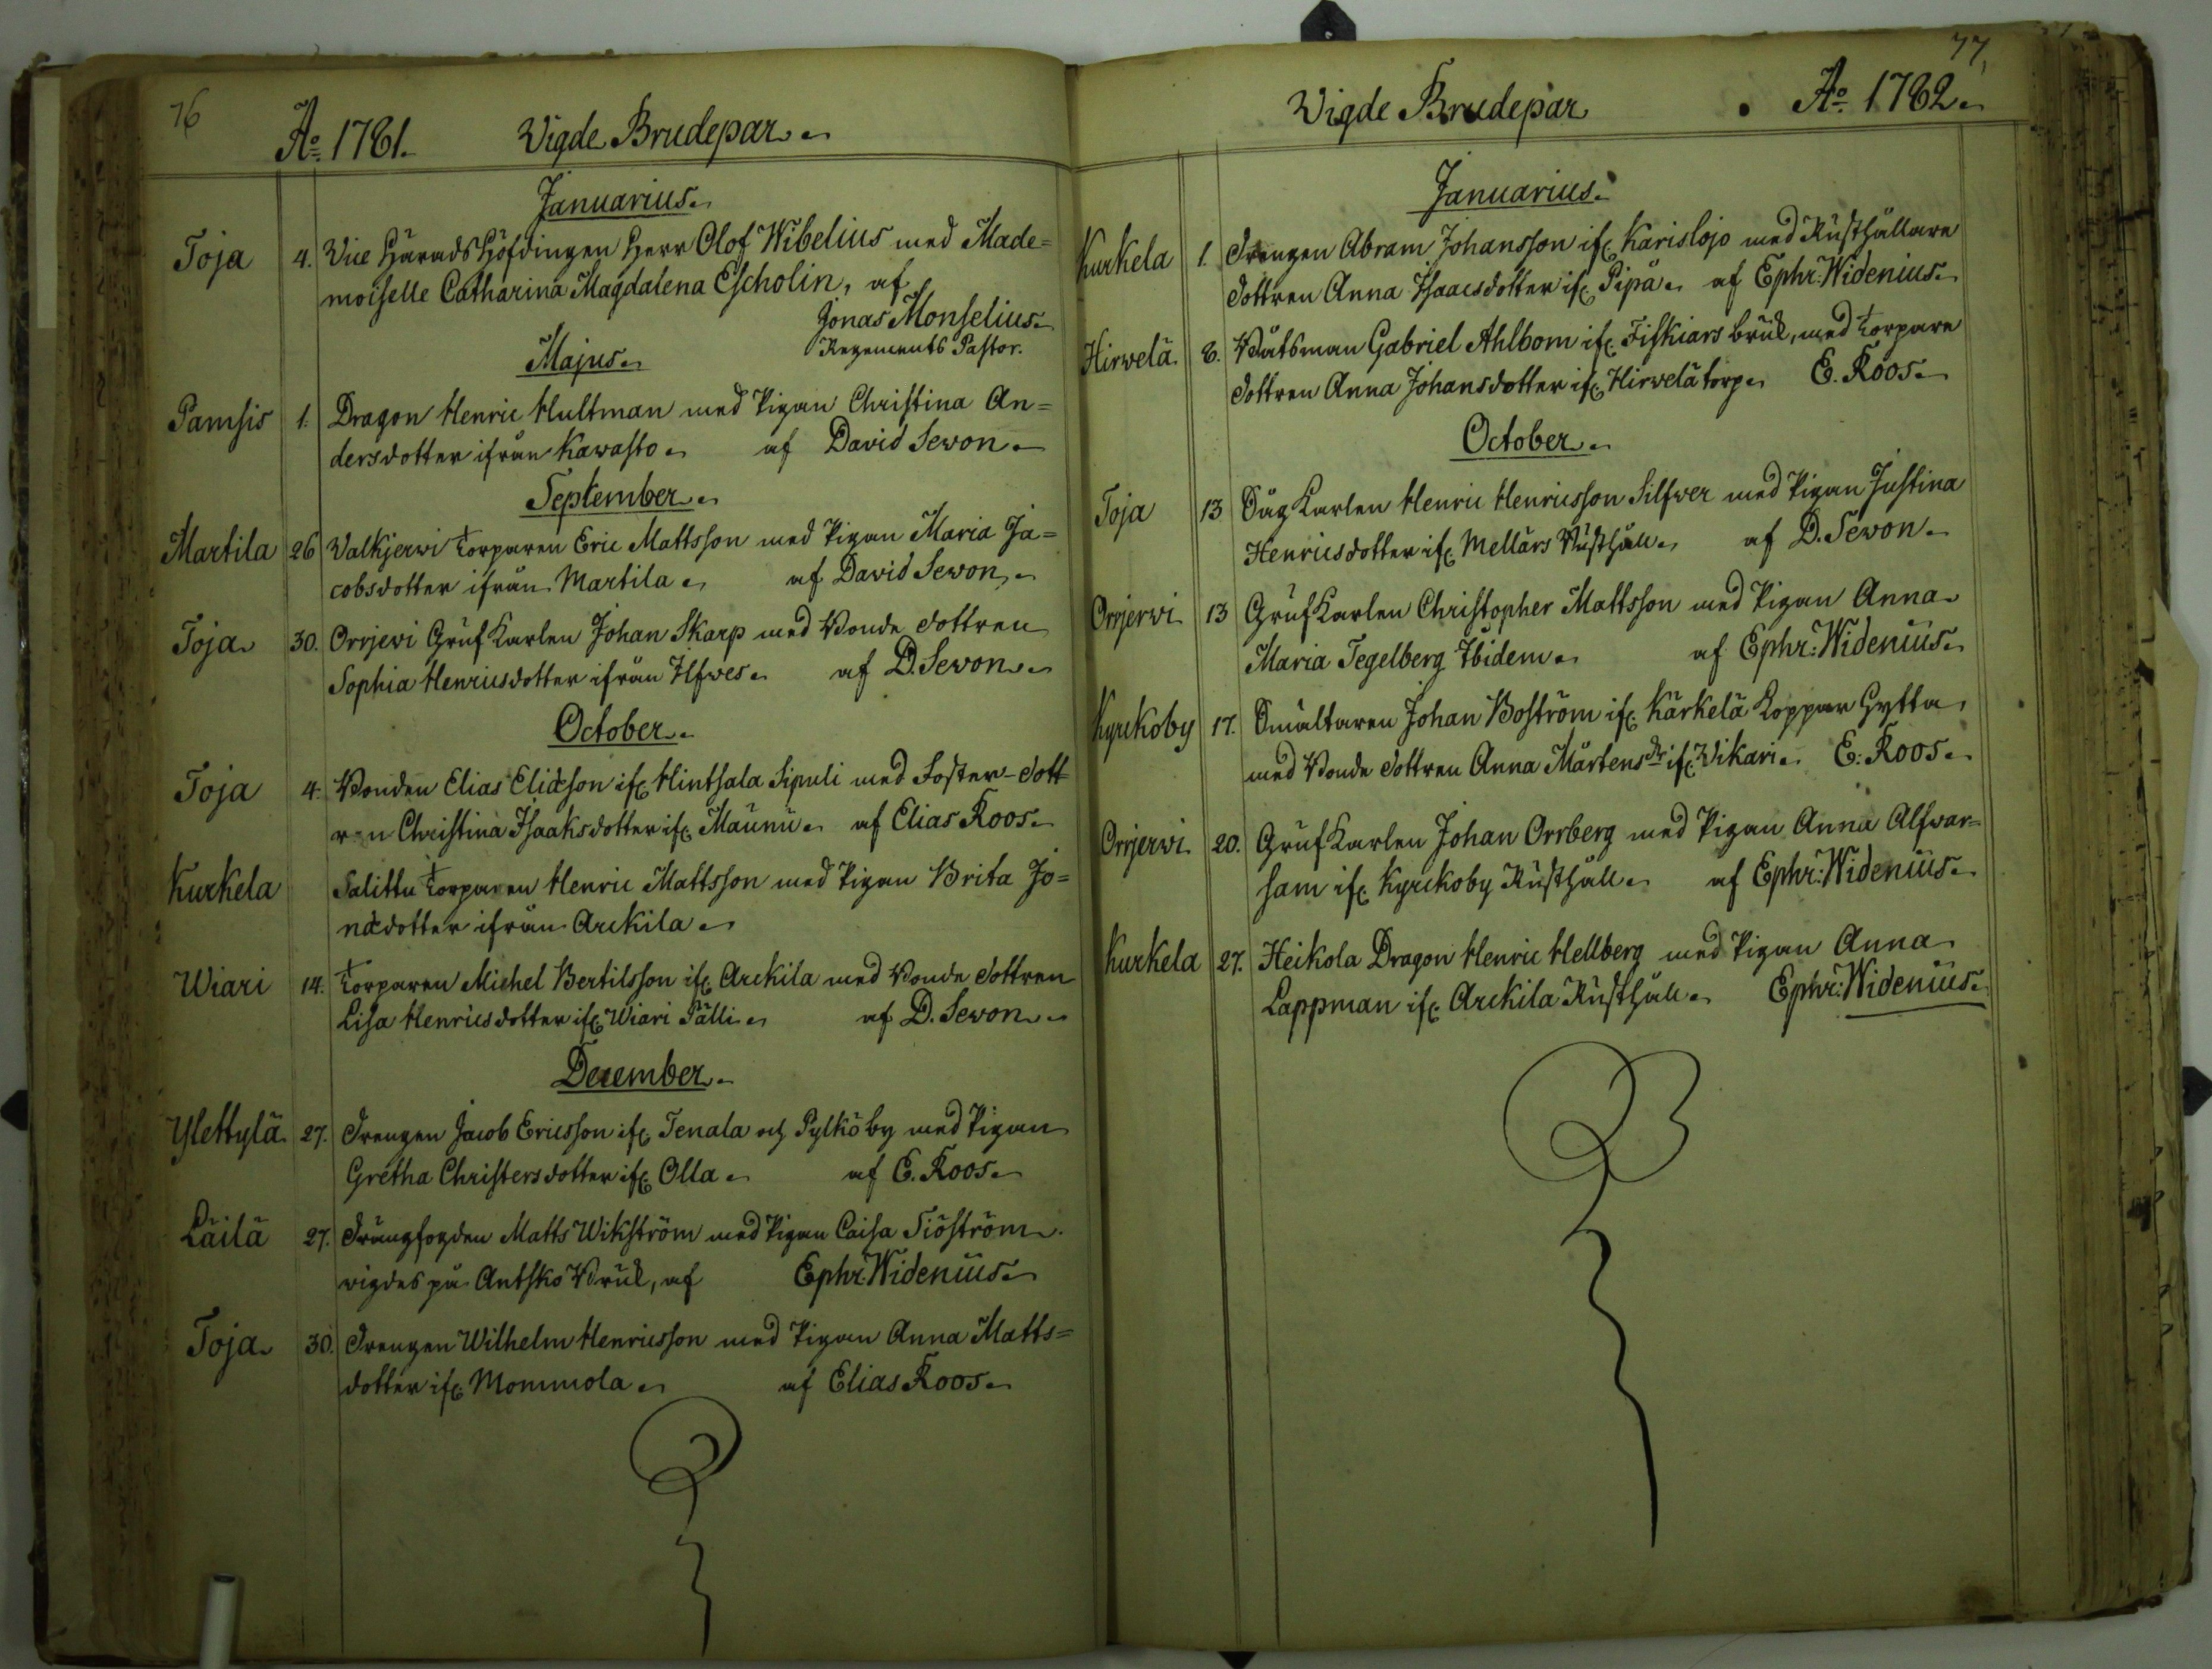 76
Aº 1781. Vigde Brudepar
Januarius
Toja 4. Vice HäradsHöfdingen Herr Olof Wibelius med Made=
moiselle Catharina Magdalena Escholin, af
Jonas Monselius
Regements Pastor.
Majus
Pamsis 1. Dragon Henric Hultman med Pigan Christina An=
dersdotter ifrån Kawasto af David Sevon
September
Martila 26 Valkjerwi Torparen Eric Mattsson med Pigan Maria Ja=
cobsdotter ifrån Martila af David Sevon
Toja 30. Orrjevi GrufKarlen Johan Skarp med Bonde dottren
Sophia Henricsdotter ifrån Ilfwes af D. Sevon
October
Toja 4. Bonden Elias Eliæson ifr. Hintsala Sipuli med Foster-dott
ren Christina Isaaksdotter ifr. Maunu af Elias Roos
Kurkela Salittu Torparen Henric Mattsson med Pigan Brita Jo=
nædotter ifrån Arckila
Wiari 14. Torparen Michel Bertilsson ifr. Arckila med Bonde dottren
Lisa Henricsdotter ifr. Wiari Pälli af D. Sevon
December
Ylettylä 27. Drengen Jacob Ericsson ifr. Tenala och Pylköby med Pigan
Gretha Christersdotter ifr. Olla af E. Roos
Läilä 27. Drängfogden Matts Wikström med Pigan Caisa Siöström
vigdes på Antskô Bruk, af Ephr. Widenius
Toja 30. Drengen Wilhelm Henricsson med Pigan Anna Matts=
dotter ifr. Mommola af Elias Roos
77
Vigde Brudepar Aº 1782
Januarius
Kurkela 1. Drengen Abram Johansson ifr. Karislojo med Rusthållare
dottren Anna Isaacsdotter ifr. Pipå af Ephr: Widenius
Hirwelä 8. Båtsman Gabriel Ahlbom ifr. Fiskiars bruk, med Torpare
dottren Anna Johansdotter ifr. Hirwelä torp E. Roos
October
Toja 13 SågKarlen Henric Henricsson Silfwer med Pigan Justina
Henricsdotter ifr. Mellärs Rusthåll af D. Sevon
Orrjerwi 13 GrufKarlen Christopher Mattsson med Pigan Anna
Maria Tegelberg Ibidem af Ephr: Widenius
Kyrckoby 17. Smältaren Johan Boström ifr. Kärkelä Koppar Hytta,
med Bonde dottren Anna Mårtens dr ifr. Wikari E: Roos
Orrjerwi 20. GrufKarlen Johan Orrberg med Pigan Anna Alfwar=
sam ifr. Kyrckoby Rusthåll af Ephr: Widenius
Kurkela 27. Heikola Dragon Henric Hellberg med Pigan Anna
Lappman ifr. Arckila Rusthåll Ephr: Widenius